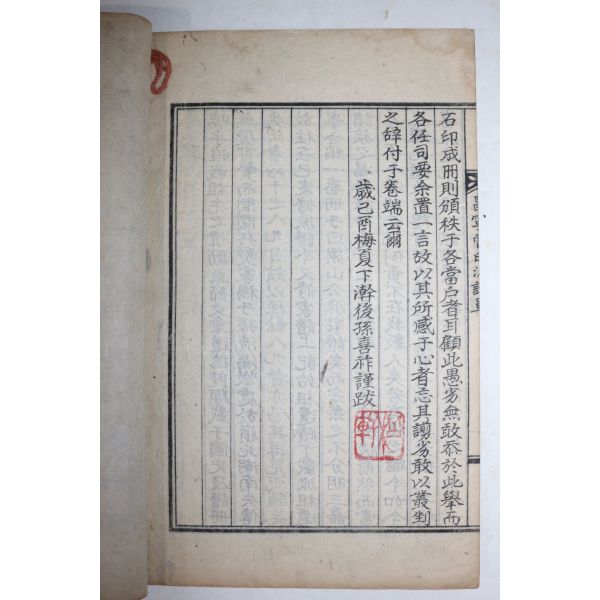 石印成冊則頒秩于各當戶者耳顧此愚劣無敢忝於此擧而
各任司要余置一言故以其所感于心者忘其謭劣敢以叢剉
之辞付于卷端云爾
歲己酉梅夏下澣後孫喜祚謹跋